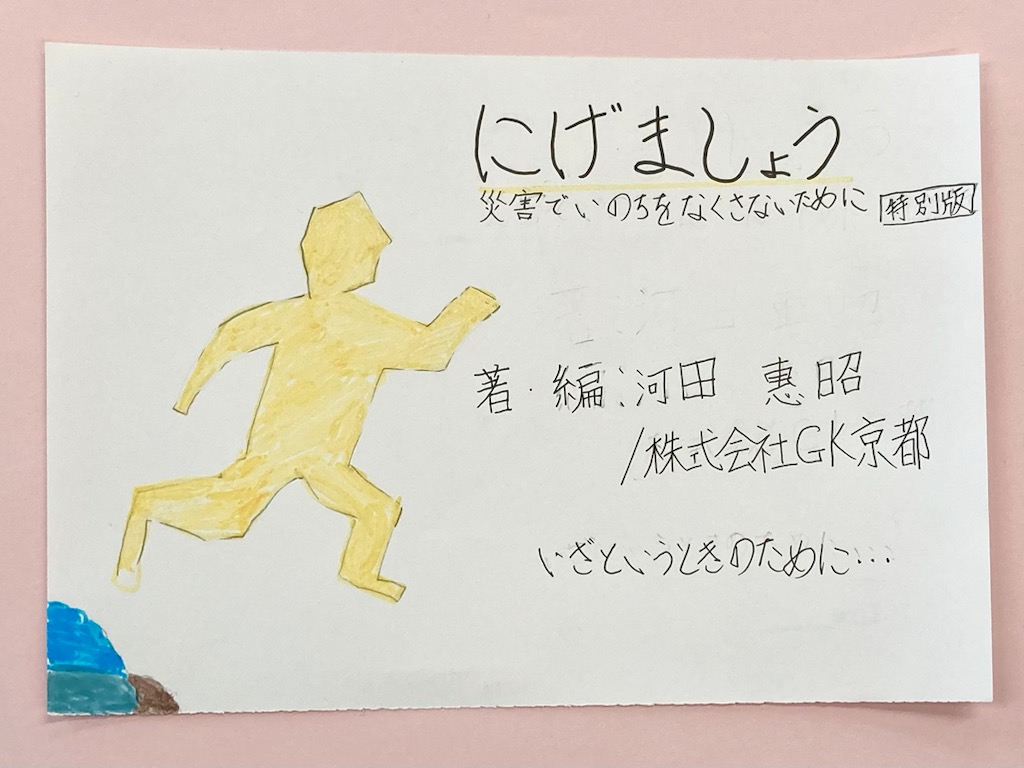 にげましょう
災害でいのちをなくさないために 特別版
著・編:河田 惠昭
/株式会社GK京都
いざというときのために…